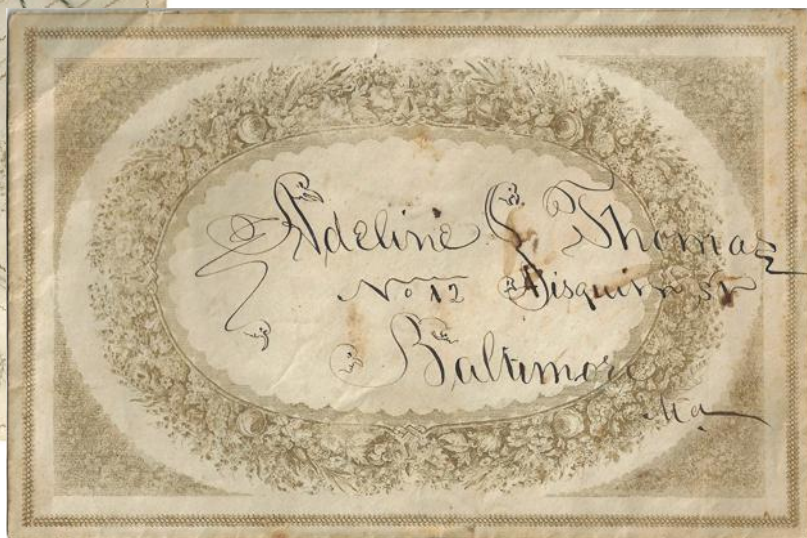 Adeline G. Thomas
No 12 Aisquith St
Baltimore
Md